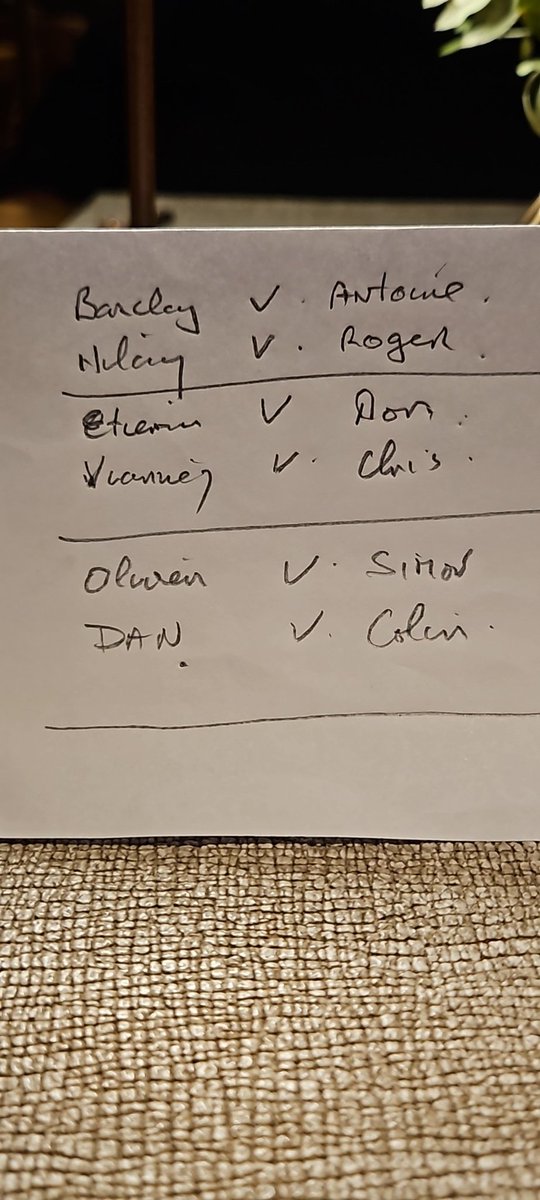 Barclay V. Antoine.
Hilary V. Roger.
Etienne V Don.
Vianney V. Chris.
Olivier V. Simon
DAN. V. Colin.